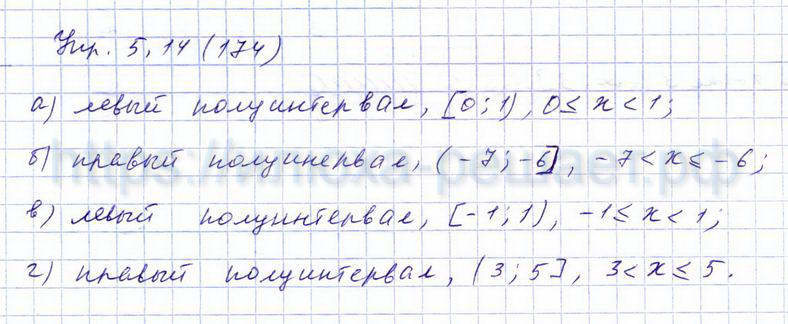 Упр. 5.14 (174)
а) левый полуинтервал, [0; 1), 0 ≤ x < 1;
б) правый полуинервал, (-7; -6], -7 < x ≤ -6;
в) левый полуинтервал, [-1; 1), -1 ≤ x < 1;
г) правый полуинтервал, (3; 5], 3 < x ≤ 5.